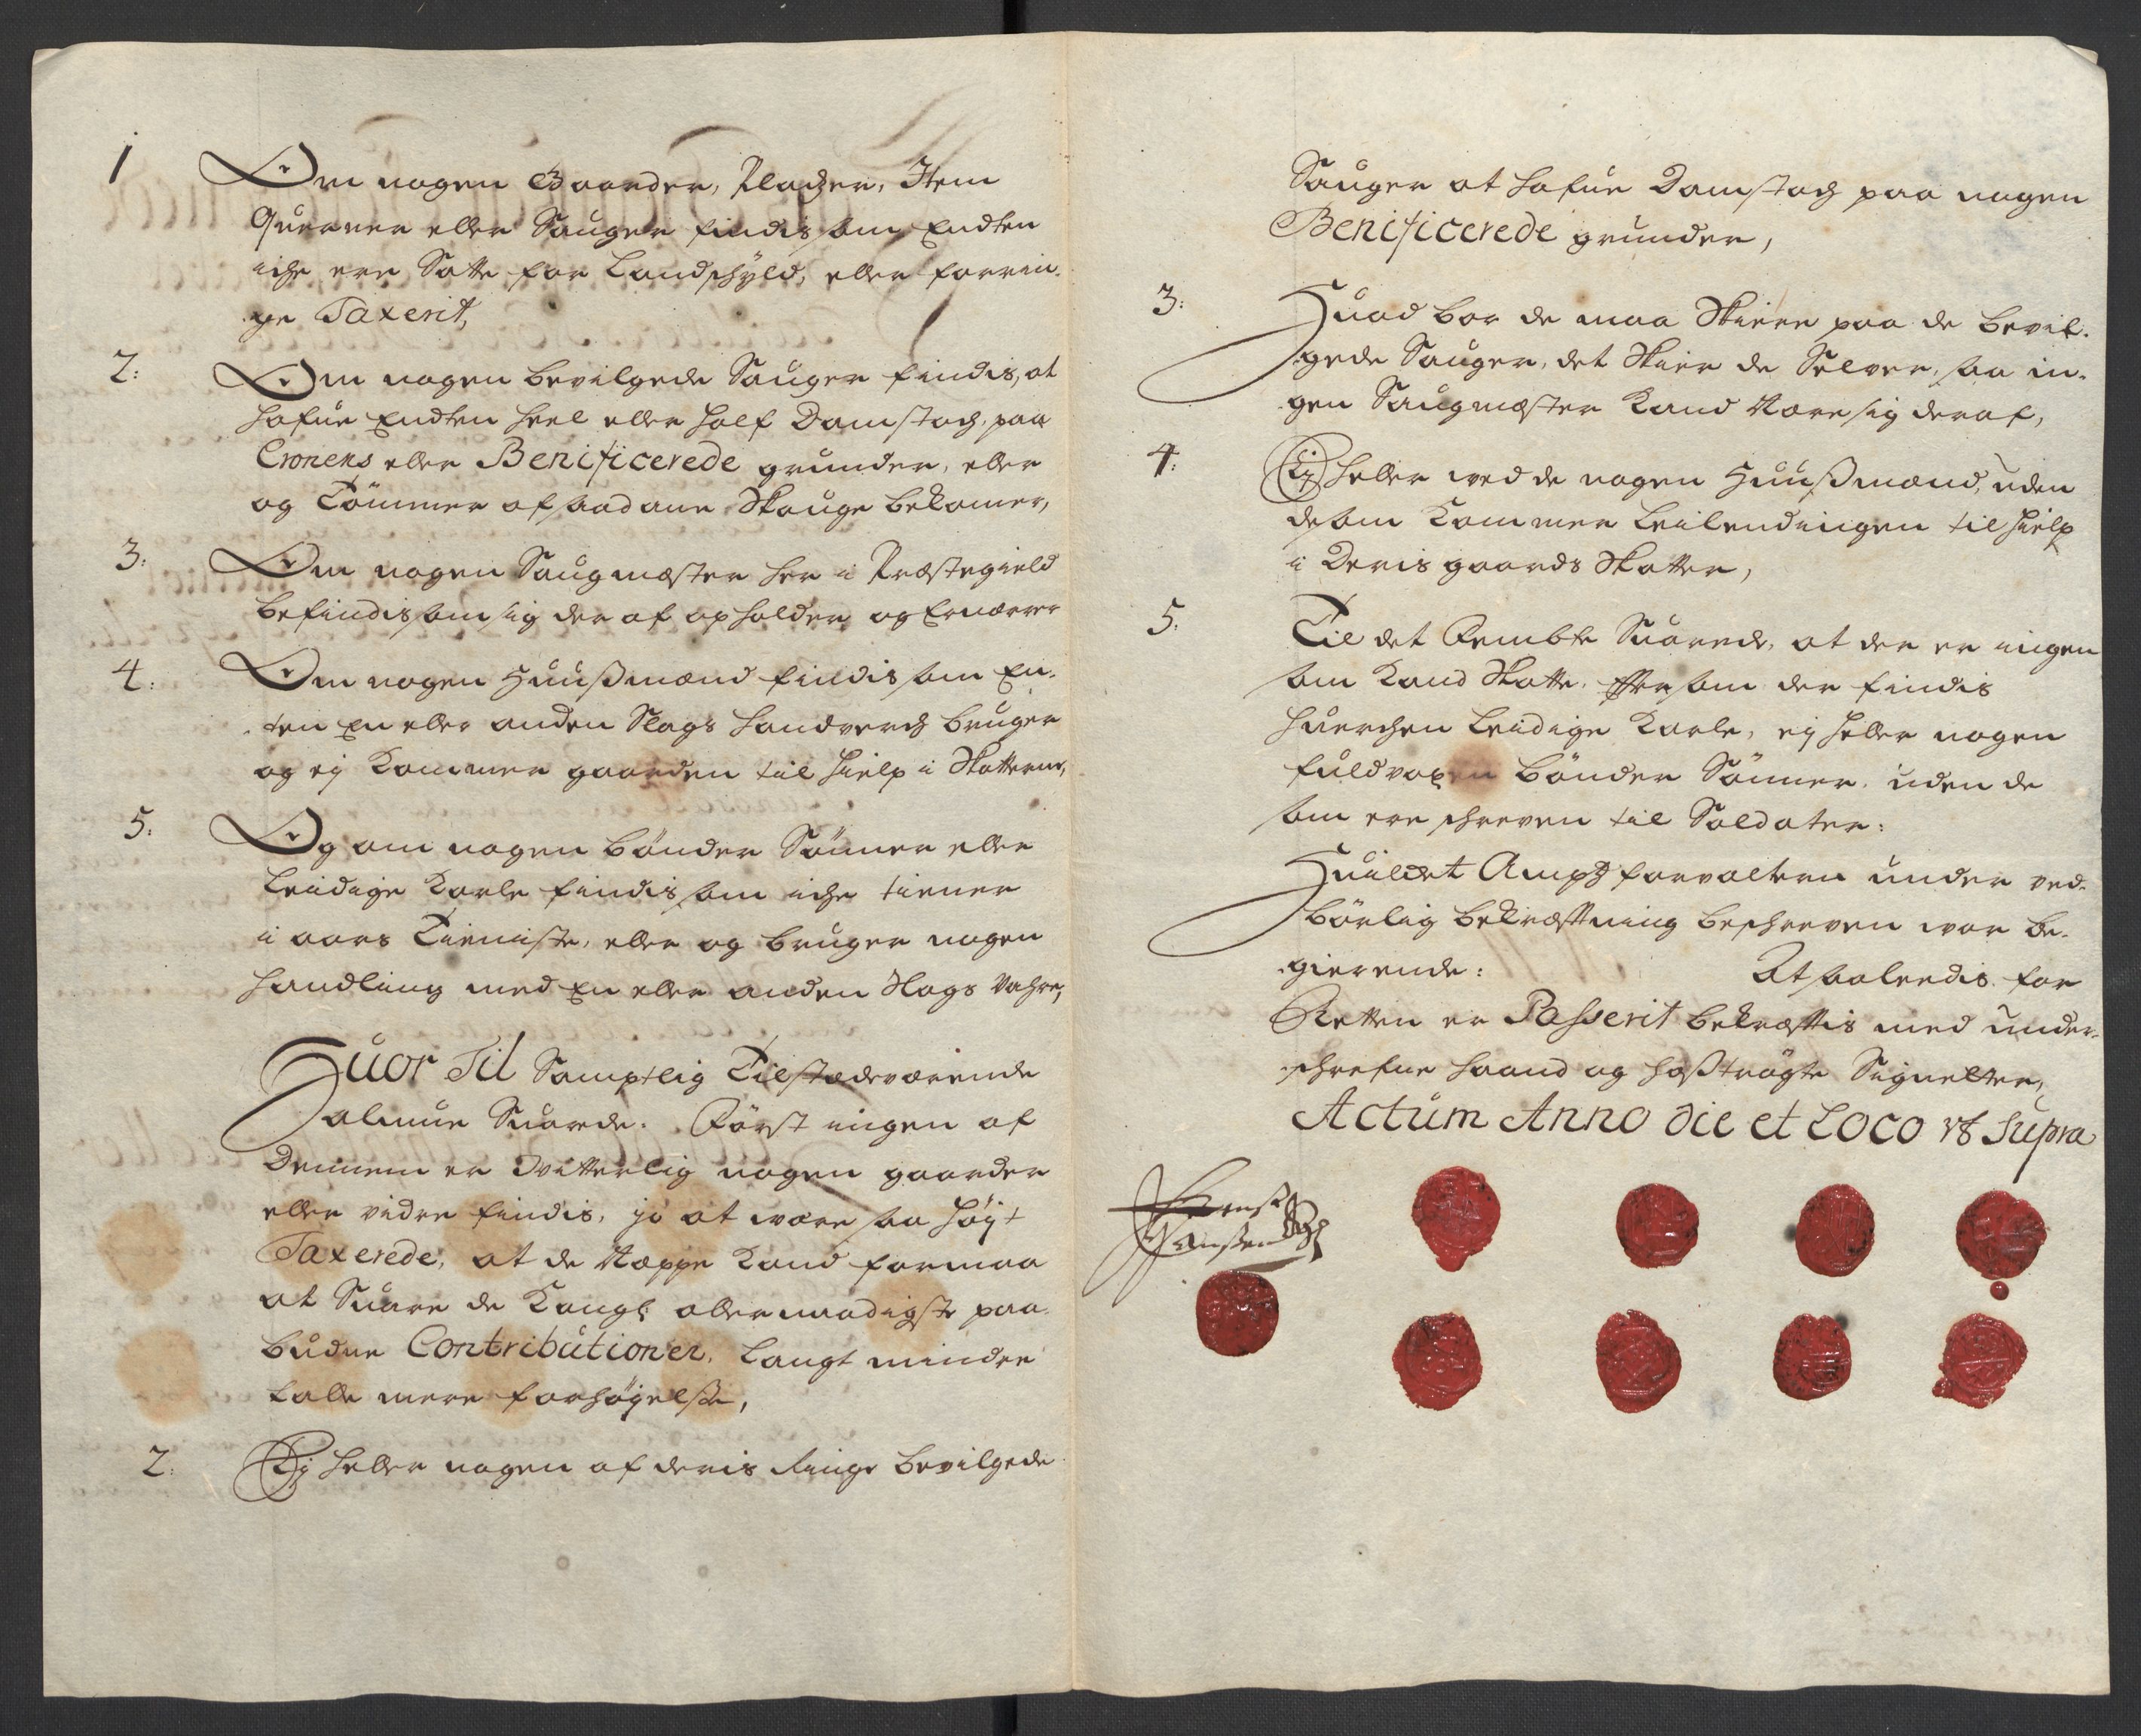 1 Om nogen Gaarder, Pladzer, Item
Querner eller Sauger findis som Endten
iche ere Satte for Landschyld, eller for rin-
ge Taxerit,
2: Om nogen bevilgede Sauger findis, at
hafue Endten heel eller half Damstoch, paa
Cronens eller Benificerede grunder, eller
og Tömmer af saadane Skouge bekomer,
3: Om nogen Saugmester her i Præstegield
befindis som sig der af opholder og Ernærer
4: Om nogen Huußmænd findis som En-
ten En eller anden Slags Handverch bruger
og ej kommer gaarden til hielp i Skatterne,
5: Og om nogen bönder Sönner eller
Leidige Karle findis som iche tiener
i aars Tieniste, eller og bruger nogen
Handling med En eller anden Slags Vahre,
Huor Til Samptlig Tilstædeværende
almue Suarede. Först ingen af
Dennem er Vitterlig nogen gaarder
eller vidre findis, jo at være saa höyt
Taxerede, at de Næppe kand formaa
at Suare de Kongl: allernaadigste paa-
budne Contributioner, langt mindre
taalle mere forhöyelse,
2: Ej heller nogen af deris ringe bevilgede
Sauger at hafue Damstoch paa nogen
Benificerede grunder,
3: Huad bor de maa Skiere paa de bevil-
gede Sauger, det Skier de Selver, saa in-
gen Saugmester kand Nære sig deraf,
4: Ej heller ved de nogen Huußmænd, uden
de som kommer Leilendingen til hielp
i Deris gaards Skatter,
5: Til det Fembte Suarede, at der er ingen
som kand Skatte, Efftersom der findis
huerchen Leidige Karle, ej heller nogen
fuldvoxen bönder Sönner, uden de
som ere schreven til Soldater:
Huilcket Ampts forvalteren under ved-
börlig bekræfftning beschreven var be-
gierende: At saaledis for
Retten er Passerit bekræfftis med under-
schrefne haand og hoßtrögte Signetter,
Actum Anno die et Loco ut Supra